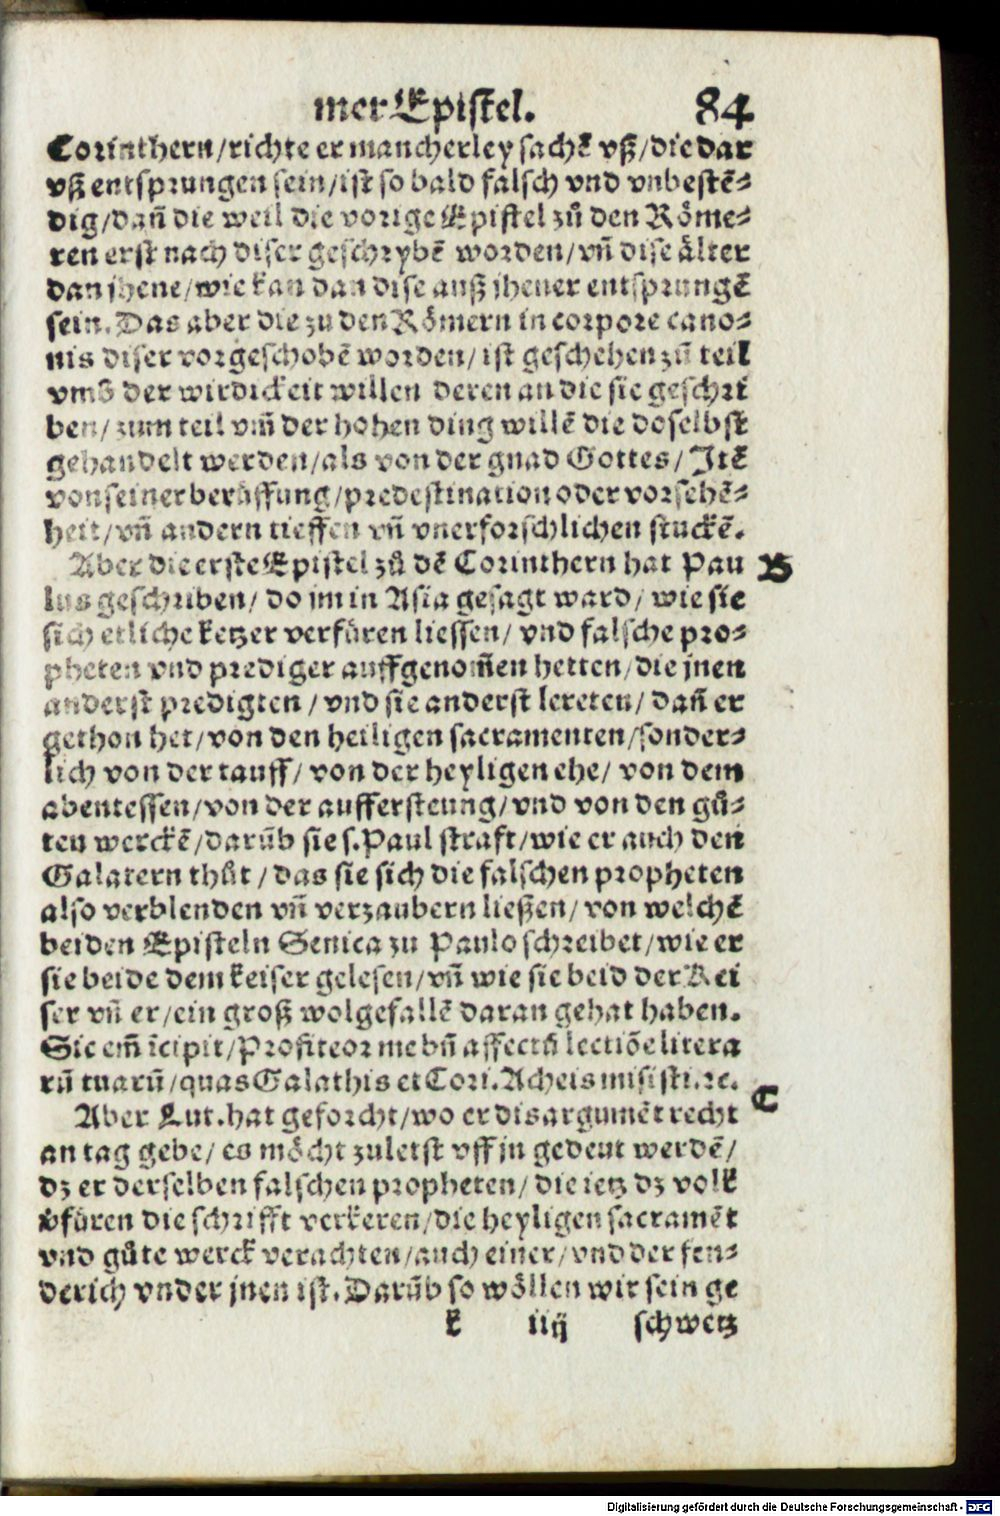 mer Epistel. 84
Corinthern/richte er mancherley sachē vß/die dar
vß entsprungen sein/ist so bald falsch vnd vnbestē⸗
dig/dañ die weil die vorige Epistel zů den Röme⸗
ren erst nach diser geschrybē worden/vñ dise älter
dan jhene/wie kan dan dise auß jhener entsprungē
sein. Das aber die zu den Römern in corpore cano⸗
nis diser vorgeschobē worden/ist geschehen zů teil
vmb der wirdickeit willen deren an die sie geschri
ben/zum teil vm̄ der hohen ding willē die doselbst
gehandelt werden/als von der gnad Gottes/Itē
von seiner berůffung/predestination oder vorsehē⸗
heit/vñ andern tieffen vñ vnerforschlichen stuckē.
Aber die erste Epistel zů dē Corinthern hat Pau B
lus geschriben/do im in Asia gesagt ward/wie sie
sich etliche ketzer verfüren liessen/vnd falsche pro⸗
pheten vnd prediger auffgenom̄en hetten/die jnen
anderst predigten/vnd sie anderst lereten/dañ er
gethon het/von den heiligen sacramenten/sonder⸗
lich von der tauff/von der heyligen ehe/von dem
abentessen/von der aufferSteung/vnd von den gů⸗
ten werckē/darūb sie s. Paul straft/wie er auch den
Galatern thůt/das sie sich die falschen propheten
also verblenden vñ verzaubern ließen/von welchē
beiden Episteln Senica zu Paulo schreibet/wie er
sie beide dem keiser gelesen/vñ wie sie beid der Kei
ser vñ er/ein groß wolgefallē daran gehat haben.
Sic em̄ īcipit/Profiteor me bñ affectū lectiōe litera
rū tuarū/quas Galathis et Cori. Acheis misisti.ꝛc.
Aber Lut. hat geforcht/wo er dis argumēt recht C
an tag gebe/es möcht zuletst vff jn gedeut werdē/
dz er derselben falschen propheten/die ietz dz volk
v̄füren die schrifft verkeren/die heyligen sacramēt
vnd gůte werck verachten/auch einer/vnd der fen⸗
derich vnder jnen ist. Darūb so wöllen wir sein ge
k iiij schwetz
Digitalisierung gefördert durch die Deutsche Forschungsgemeinschaft - DFG